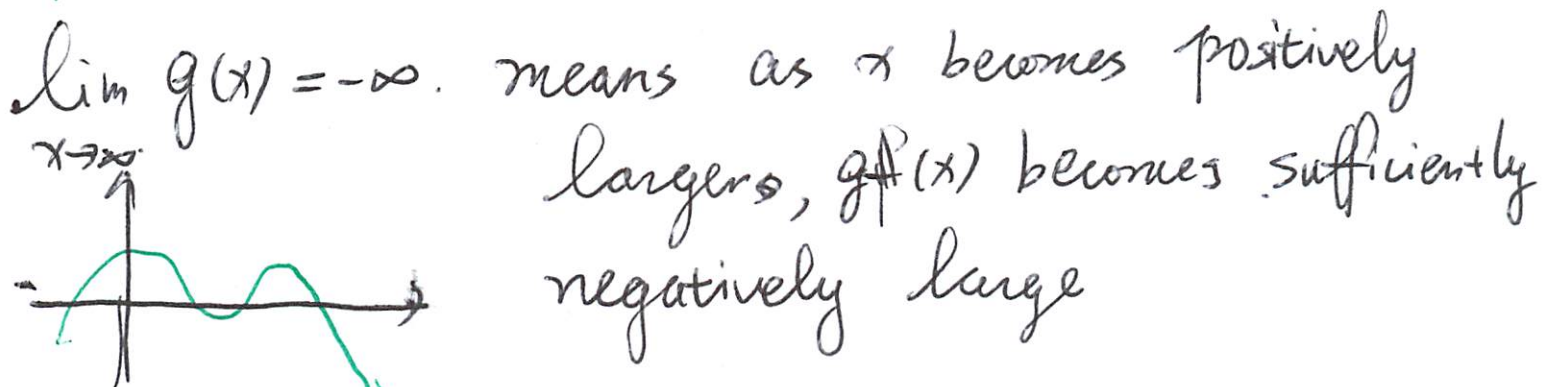 lim g(x) = -∞. means as x becomes positively
x→∞
larger, g(x) becomes sufficiently
negatively large